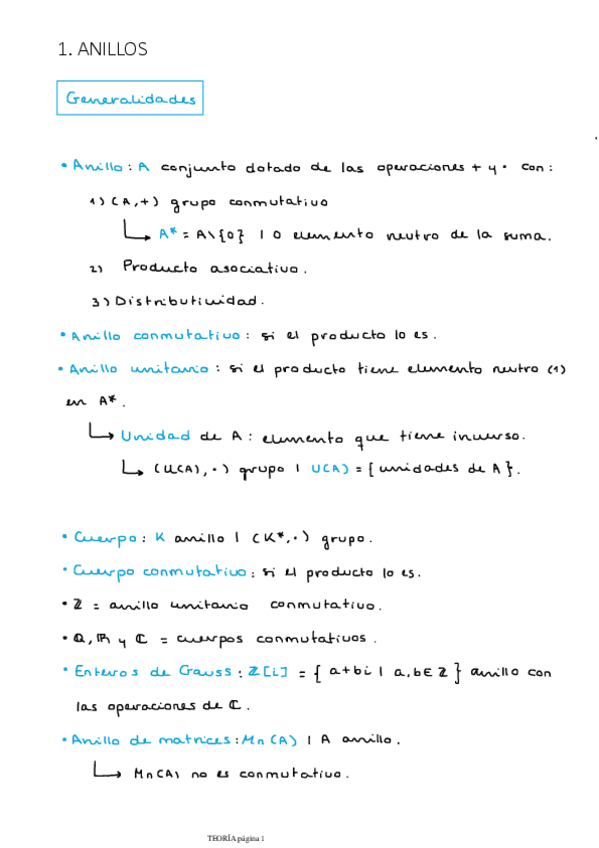 1. ANILLOS
Generalidades
• Anillo: A conjunto dotado de las operaciones + y · con:
1) (A,+) grupo conmutativo
↳ A* = A\{0} | 0 elemento neutro de la suma.
2) Producto asociativo.
3) Distributividad.
• Anillo conmutativo: si el producto lo es.
• Anillo unitario: si el producto tiene elemento neutro (1)
en A*.
↳ Unidad de A: elemento que tiene inverso.
↳ (U(A), ·) grupo | U(A) = { unidades de A }.
• Cuerpo: K anillo | (K*, ·) grupo.
• Cuerpo conmutativo: si el producto lo es.
• ℤ = anillo unitario conmutativo.
• ℚ, ℝ y ℂ = cuerpos conmutativos.
• Enteros de Gauss: ℤ[i] = { a+bi | a, b ∈ ℤ } anillo con
las operaciones de ℂ.
• Anillo de matrices: Mn(A) | A anillo.
↳ Mn(A) no es conmutativo.
TEORÍA página 1